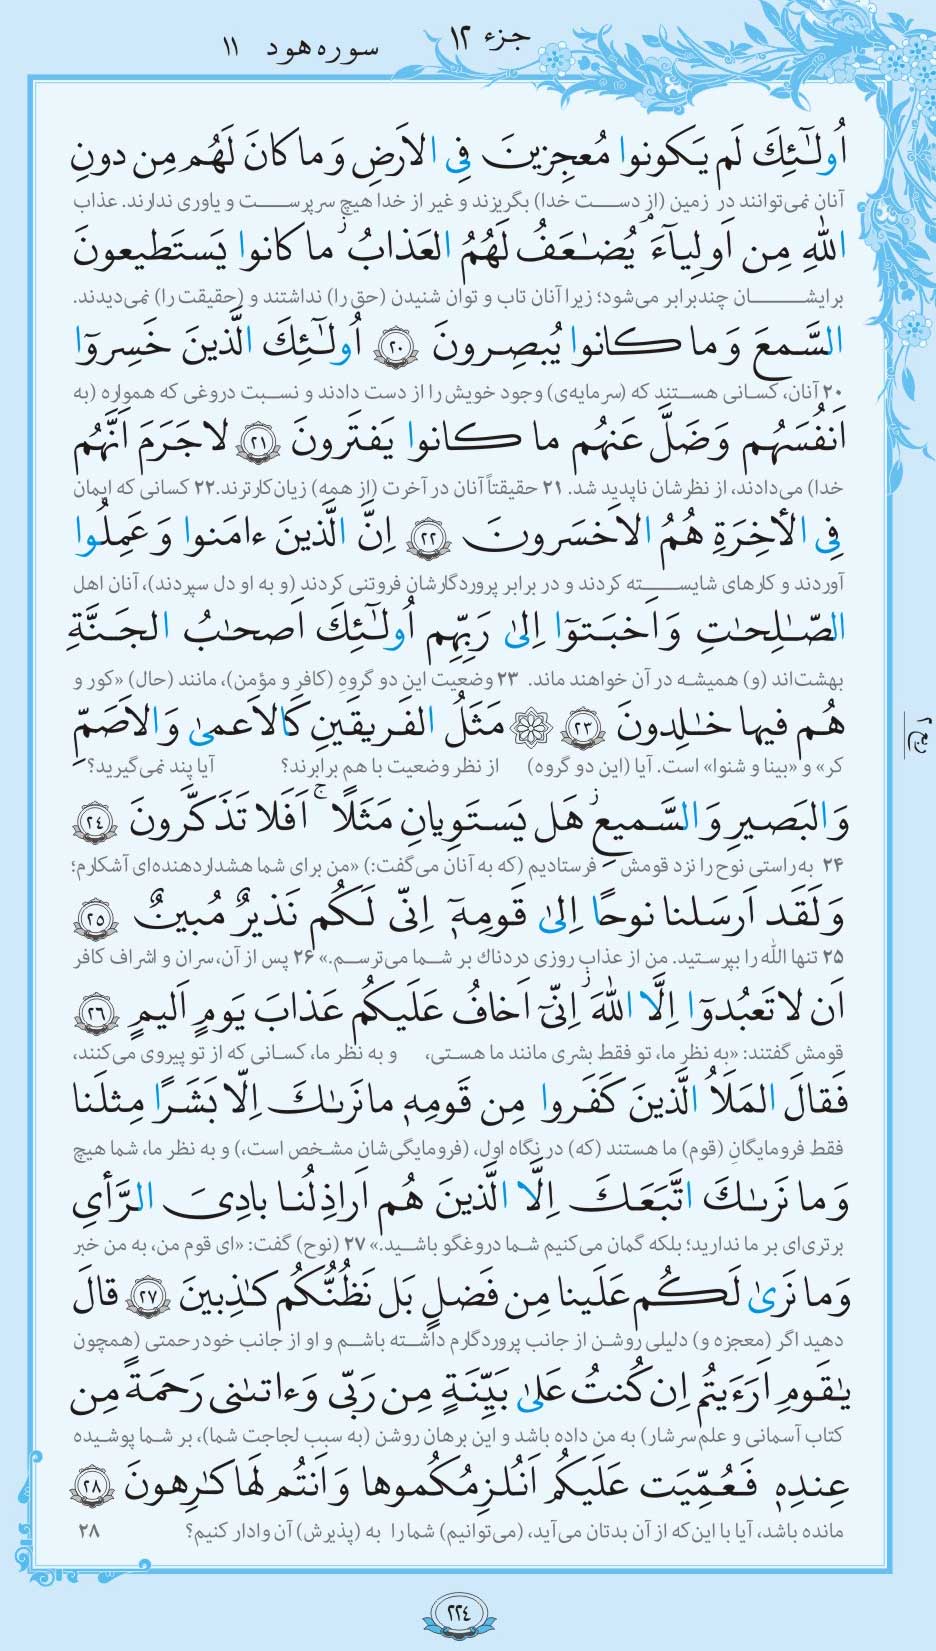 جزء ۱۲
سوره هود ۱۱
اُولٰٓئِكَ لَم يَكونوا مُعجِزينَ فِي الاَرضِ وَ ما كانَ لَهُم مِن دونِ
آنان نمی‌توانند در زمین (از دست خدا) بگریزند و غیر از خدا هیچ سرپرست و یاوری ندارند. عذاب
اللّٰهِ مِن اَولِيآءَ ۘ يُضٰعَفُ لَهُمُ العَذابُ ۚ ما كانوا يَستَطيعونَ
برایشان چندبرابر می‌شود؛ زیرا آنان تاب و توان شنیدن (حق را) نداشتند و (حقیقت را) نمی‌دیدند.
السَّمعَ وَ ما كانوا يُبصِرونَ ﴿٢٠﴾ اُولٰٓئِكَ الَّذينَ خَسِروٓا
۲۰ آنان، کسانی هستند که (سرمایه‌ی) وجود خویش را از دست دادند و نسبت دروغی که همواره (به
اَنفُسَهُم وَ ضَلَّ عَنهُم ما كانوا يَفتَرونَ ﴿٢١﴾ لا جَرَمَ اَنَّهُم
خدا) می‌دادند، از نظرشان ناپدید شد. ۲۱ حقیقتاً آنان در آخرت (از همه) زیان‌کارترند. ۲۲ کسانی که ایمان
فِي الأخِرَةِ هُمُ الاَخسَرونَ ﴿٢٢﴾ اِنَّ الَّذينَ ءامَنوا وَ عَمِلُوا
آوردند و کارهای شایسته کردند و در برابر پروردگارشان فروتنی کردند (و به او دل سپردند)، آنان اهل
الصّٰلِحٰتِ وَ اَخبَتوٓا اِلىٰ رَبِّهِم اُولٰٓئِكَ اَصحٰبُ الجَنَّةِ
بهشت‌اند (و) همیشه در آن خواهند ماند. ۲۳ وضعیت این دو گروهِ (کافر و مؤمن)، مانند (حال) «کور و
هُم فيها خٰلِدونَ ﴿٢٣﴾ ۞ مَثَلُ الفَريقَينِ كَالاَعمىٰ وَ الاَصَمِّ
کر» و «بینا و شنوا» است. آیا (این دو گروه) از نظر وضعیت با هم برابرند؟ آیا پند نمی‌گیرید؟
وَ البَصيرِ وَ السَّميعِ ۚ هَل يَستَوِيانِ مَثَلًا ۚ اَفَلا تَذَكَّرونَ ﴿٢٤﴾
۲۴ به‌راستی نوح را نزد قومش فرستادیم (که به آنان می‌گفت:) «من برای شما هشداردهنده‌ای آشکارم؛
وَ لَقَد اَرسَلنا نوحًا اِلىٰ قَومِهٖٓ اِنّي لَكُم نَذيرٌ مُبينٌ ﴿٢٥﴾
۲۵ تنها الله را بپرستید. من از عذاب روزی دردناك بر شما می‌ترسم.» ۲۶ پس از آن، سران و اشراف کافر
اَن لا تَعبُدوٓا اِلَّا اللّٰهَ ۚ اِنّيٓ اَخافُ عَلَيكُم عَذابَ يَومٍ اَليمٍ ﴿٢٦﴾
قومش گفتند: «به نظر ما، تو فقط بشری مانند ما هستی، و به نظر ما، کسانی که از تو پیروی می‌کنند،
فَقالَ المَلَاُ الَّذينَ كَفَروا مِن قَومِهٖ ما نَرىٰكَ اِلّا بَشَرًا مِثلَنا
فقط فرومایگانِ (قوم) ما هستند (که) در نگاه اول، (فرومایگی‌شان مشخص است،) و به نظر ما، شما هیچ
وَ ما نَرىٰكَ اتَّبَعَكَ اِلَّا الَّذينَ هُم اَراذِلُنا بادِيَ الرَّأيِ
برتری‌ای بر ما ندارید؛ بلکه گمان می‌کنیم شما دروغگو باشید.» ۲۷ (نوح) گفت: «ای قوم من، به من خبر
وَ ما نَرىٰ لَكُم عَلَينا مِن فَضلٍ بَل نَظُنُّكُم كٰذِبينَ ﴿٢٧﴾ قالَ
دهید اگر (معجزه و) دلیلی روشن از جانب پروردگارم داشته باشم و او از جانب خود رحمتی (همچون
يٰقَومِ اَرَءَيتُم اِن كُنتُ عَلىٰ بَيِّنَةٍ مِن رَبّي وَ ءاتٮٰني رَحمَةً مِن
کتاب آسمانی و علم سرشار) به من داده باشد و این برهان روشن (به سبب لجاجت شما)، بر شما پوشیده
عِندِهٖ فَعُمِّيَت عَلَيكُم اَنُلزِمُكُموها وَ اَنتُم لَها كٰرِهونَ ﴿٢٨﴾
مانده باشد، آیا با این‌که از آن بدتان می‌آید، (می‌توانیم) شما را به (پذیرش) آن وادار کنیم؟ ۲۸
٢٢٤